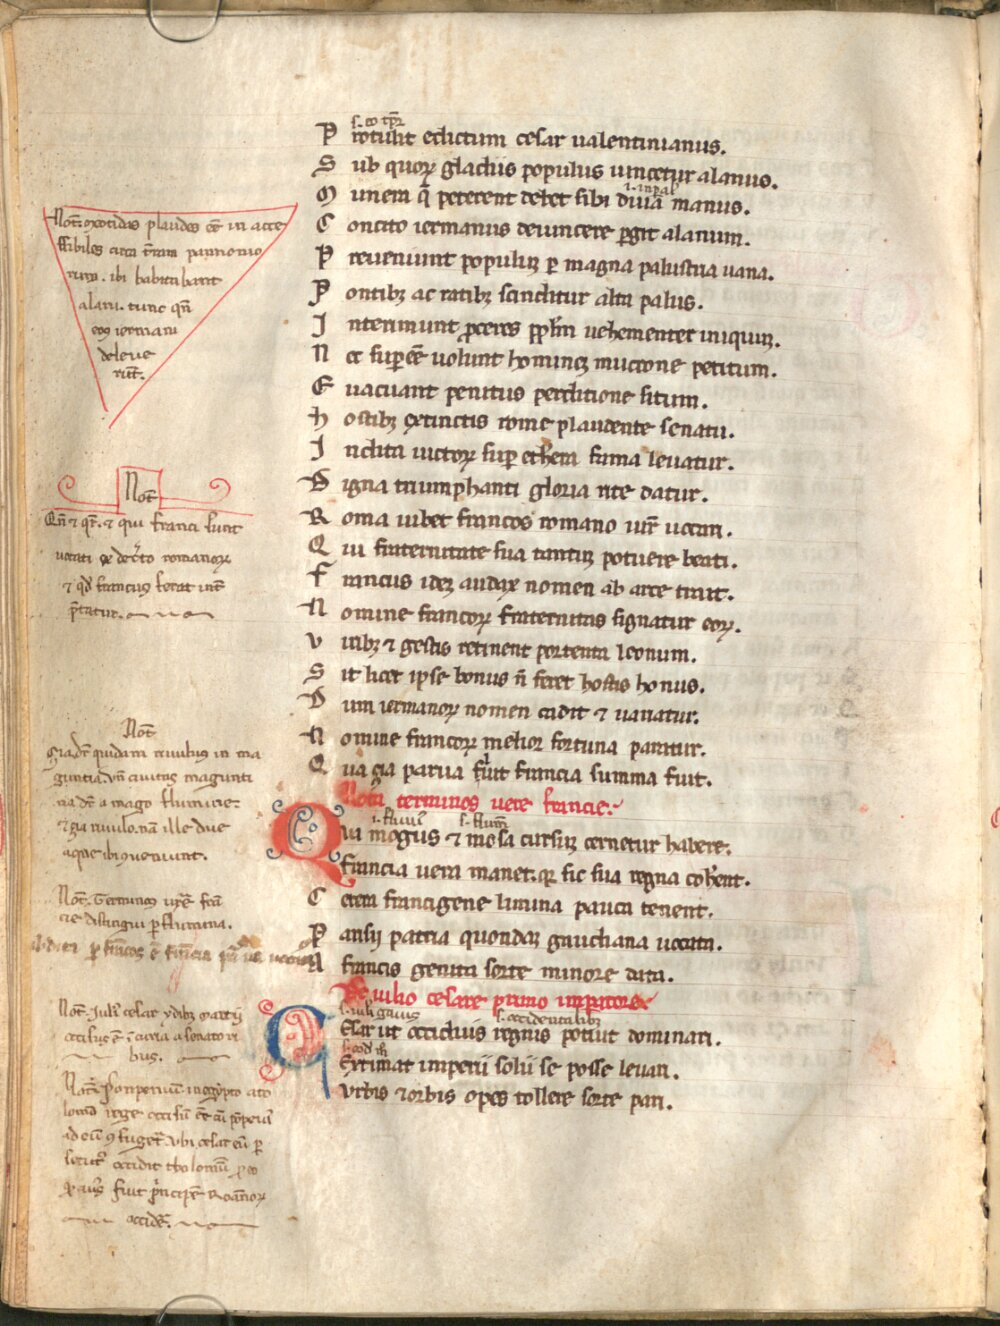 s. eo tp̄r
Protulit edictum cesar ualentinianus.
Sub quoꝝ gladiis populus uincetur alanus.
i. inpial
Munem q̄ peterent debet sibi diuīā manus.
Concito iermanus deuincere ꝑgit alanum.
Preueniunt populuꝫ ꝑ magna palustria uana.
Pontibꝫ ac ratibꝫ scinditur alta palus.
Interimunt ꝓceres ppl̄m uehementer iniquuꝫ.
Nec suꝑ eē uolunt hominēs mucrone petitum.
Euacuant penitus perditione situm.
Hostibꝫ extinctis rome plaudente senatu.
Inclita uictorꝝ suꝑ ethera fama leuatur.
Digna triumphanti gloria rite datur.
Roma iubet francos romano iur̄ uocari.
Qui fraternitate sua tantuꝫ potuere beati.
Francus ideꝫ audax nomen ab arce trait.
Nomine francoꝝ fraternitas signatur eoꝝ.
Viribꝫ ⁊ gestis retinent portenta leonum.
Sit licet ipse bonus n̄ feret hostis honus.
Dum iermanoꝝ nomen cadit ⁊ uanatur.
Nomine francoꝝ melior fortuna paratur.
Qua gia parua fuit francia summa fuit.
Nota terminos uere francie.
i. fluuiꝰ s. flum̄
Qua mogus ⁊ mosa cursuꝫ cernetur habere.
Francia uera manet. qꝫ sic sua regna coh̄ent.
Cetera francigene limina pauca tenent.
Parisii patria quondaꝫ gauchana uocata.
A francis genita sorte minore data.
De iulio cesare primo inpatore
s. iuliꝰ gaius s. occidentalibꝫ
Cesar ut occiduis regnis potiut dominari.
Extimat imperii solii se posse leuari.
Vrbis ⁊ orbis opes tollere sorte pari.
Not̄. meotidas plaudes eē in acce
ssibiles circa t̄ram pannonio
rum. ibi habitabant
alani. tunc qn̄
eos iermani
deleue
rūt.
Not̄
Qn̄ ⁊ qr̄. ⁊ qui franci sunt
uocati ex dec̄to romanoꝝ
⁊ qd̄ francus ferat int̄
p̄tatur.
Not̄
Gia dr̄ quidam riuulus in ma
guntia. vn̄ ciuitas magunti
na dr̄ a mago flumine
⁊ gia riuulo. nā ille due
aque ibi ꝯueniunt.
Not̄. Terminos uer̄e frā
cie distingui ꝑ flumina.
Not̄. Juliꝰ cesar ydibꝫ martij
occisus ē ī curia a senatori
bus.
Not̄. Ponpeium in egypto a to
lomeo rege occisū
ad eū ꝯfuget̄. Vbi cesar eū ꝑ
occidit tholomeū ꝓ eo
fuit princeps Roanoꝝ
occidet̄.